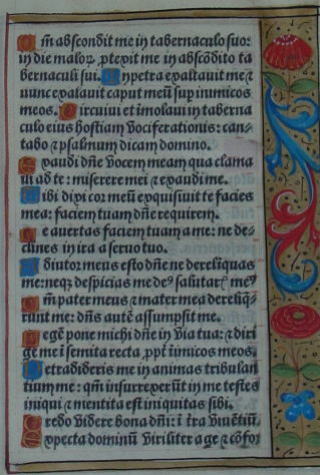 Qm̃ abscondit me in tabernaculo suo:
in die maloꝝ ꝓtexit me in abscõdito ta
bernaculi sui. In petra exaltauit me: ⁊
nunc exaltauit caput meũ sup inimicos
meos. Circuiui et imolaui in taberna
culo eius hostiam vociferationis: can-
tabo ⁊ psalmum dicam domino.
Exaudi dñe vocem meam qua clama
ui ad te: miserere mei ⁊ exaudi me.
Tibi dixi cor meũ exquisiuit te facies
mea: faciem tuam dñe requirem.
Ne auertas faciem tuam a me: ne de-
clines in ira a seruo tuo.
Adiutor meus esto dñe ne derelĩquas
me: neqꝫ despicias me deꝰ salutarꝭ meꝰ
Qm̃ pater meus ⁊ mater mea derelĩq̃-
runt me: dñs autẽ assumpsit me.
Legẽ pone michi dñe in via tua: ⁊ diri
ge me ĩ semita recta ꝓpt̃ inimicos meos.
Ne tradideris me in animas tribulan
tium me: qm̃ insurrexerũt in me testes
iniqui ⁊ mentita est iniquitas sibi.
Credo videre bona dñi: ĩ t̃ra viuẽtiũ.
Expecta dominũ viriliter age ⁊ cõfor